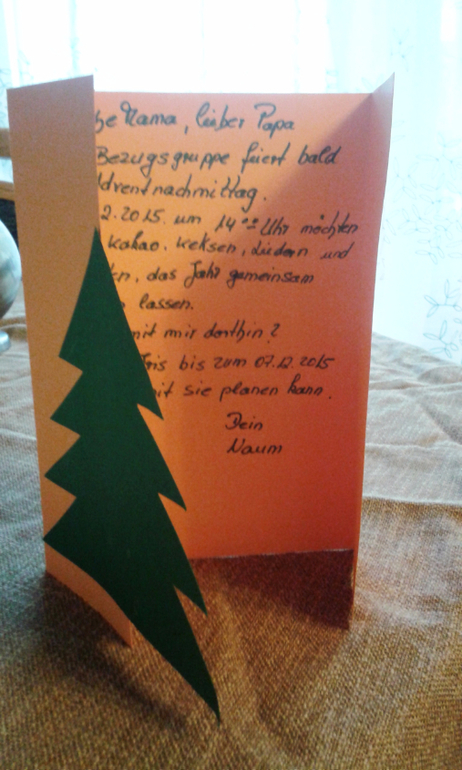 be Mama, lieber Papa
Bezugsgruppe feiert bald
dventnachmittag.
2.2015. um 14⁰⁰ Uhr möchten
Kakao, Keksen, Liedern und
n, das Jahr gemeinsam
lassen.
mit mir dorthin?
Iris bis zum 07.12.2015
it sie planen kann.
Dein
Naum